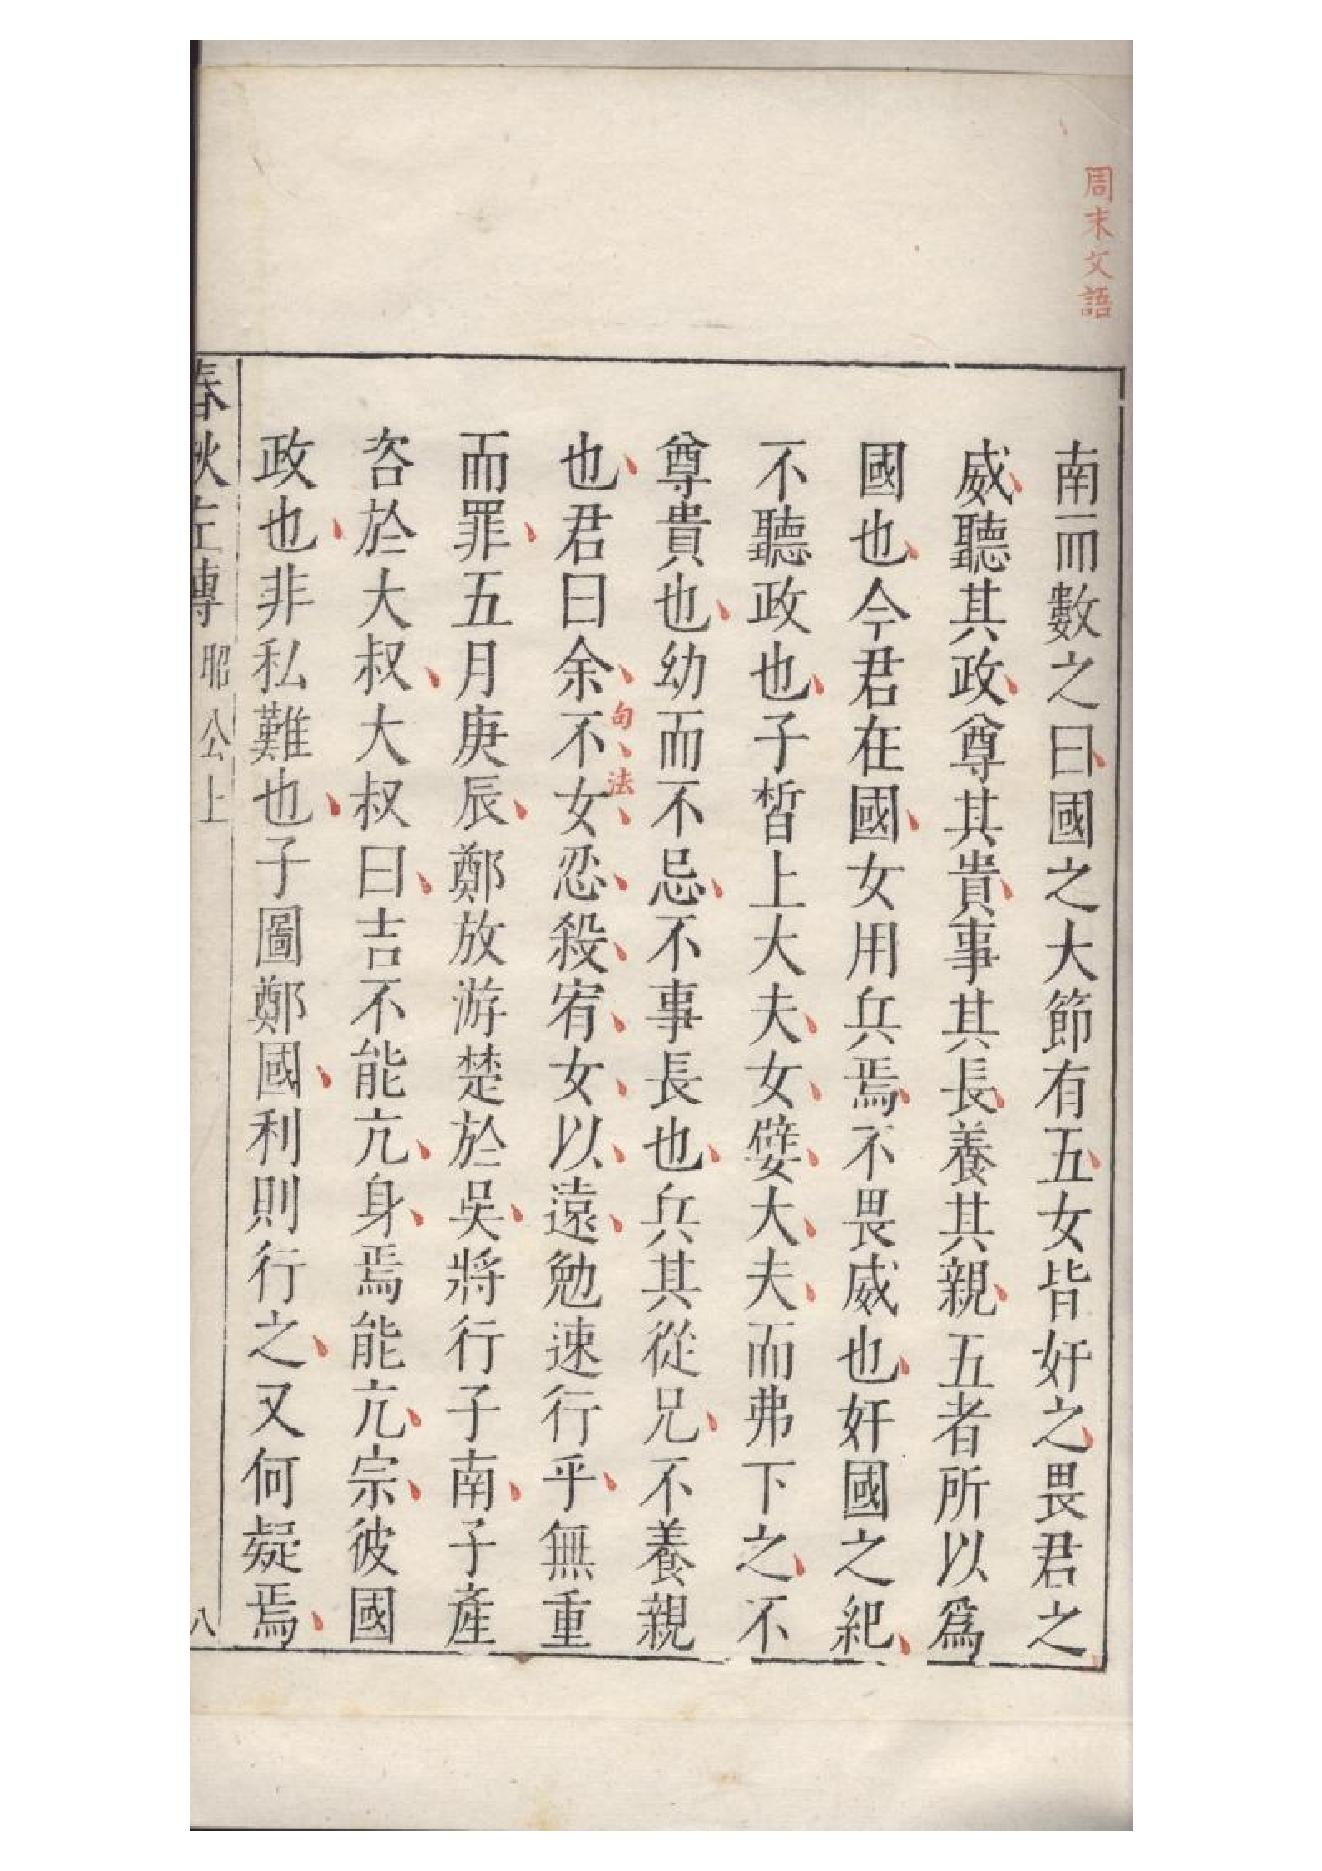 周末文語
南而數之曰國之大節有五女皆奸之畏君之
威聽其政尊其貴事其長養其親五者所以爲
國也今君在國女用兵焉不畏威也奸國之紀
不聽政也子晳上大夫女嬖大夫而弗下之不
尊貴也幼而不忌不事長也兵其從兄不養親
也君曰余不女忍殺宥女以遠勉速行乎無重
句法
而罪五月庚辰鄭放游楚於吳將行子南子產
咨於大叔大叔曰吉不能亢身焉能亢宗彼國
政也非私難也子圖鄭國利則行之又何疑焉
春秋左傳 昭公上 八